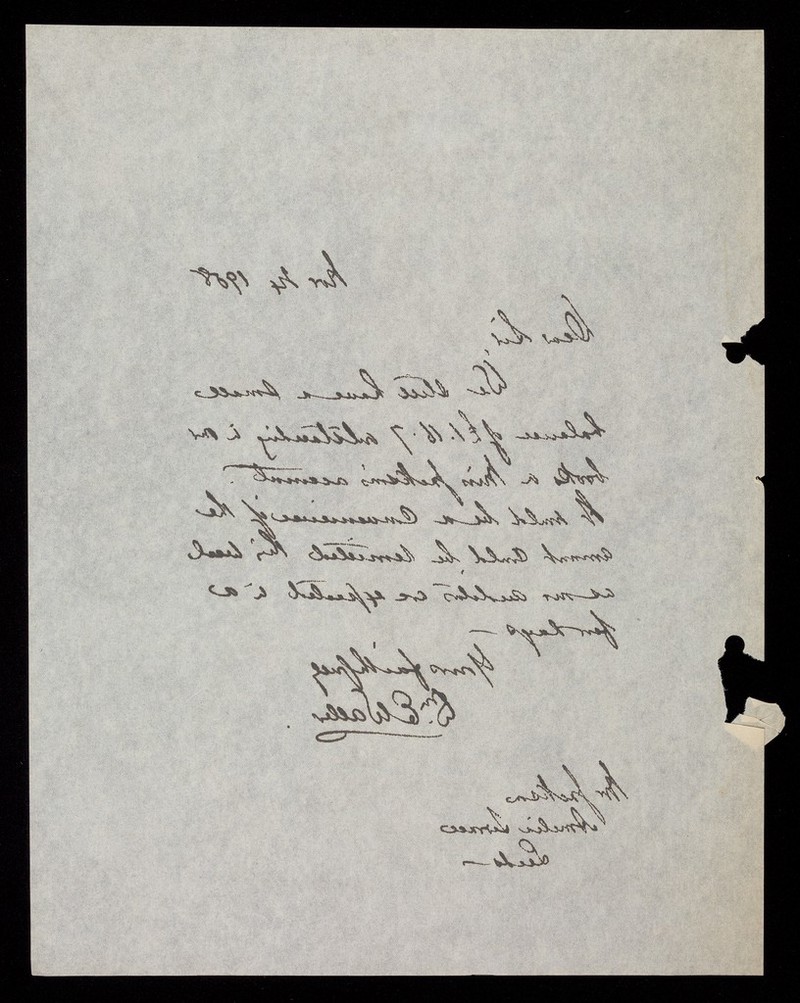 Nov 24 1908
Dear Sir,
We still have a small
balance of £1.16.7 outstanding in our
books a Miss Jackson's account.
It would be a convenience if the
amount could be remitted this week
as our auditors are expected in a
few days —
Yours faithfully
E Walls
Mr Jackson
Amelia Terrace
Leeds —